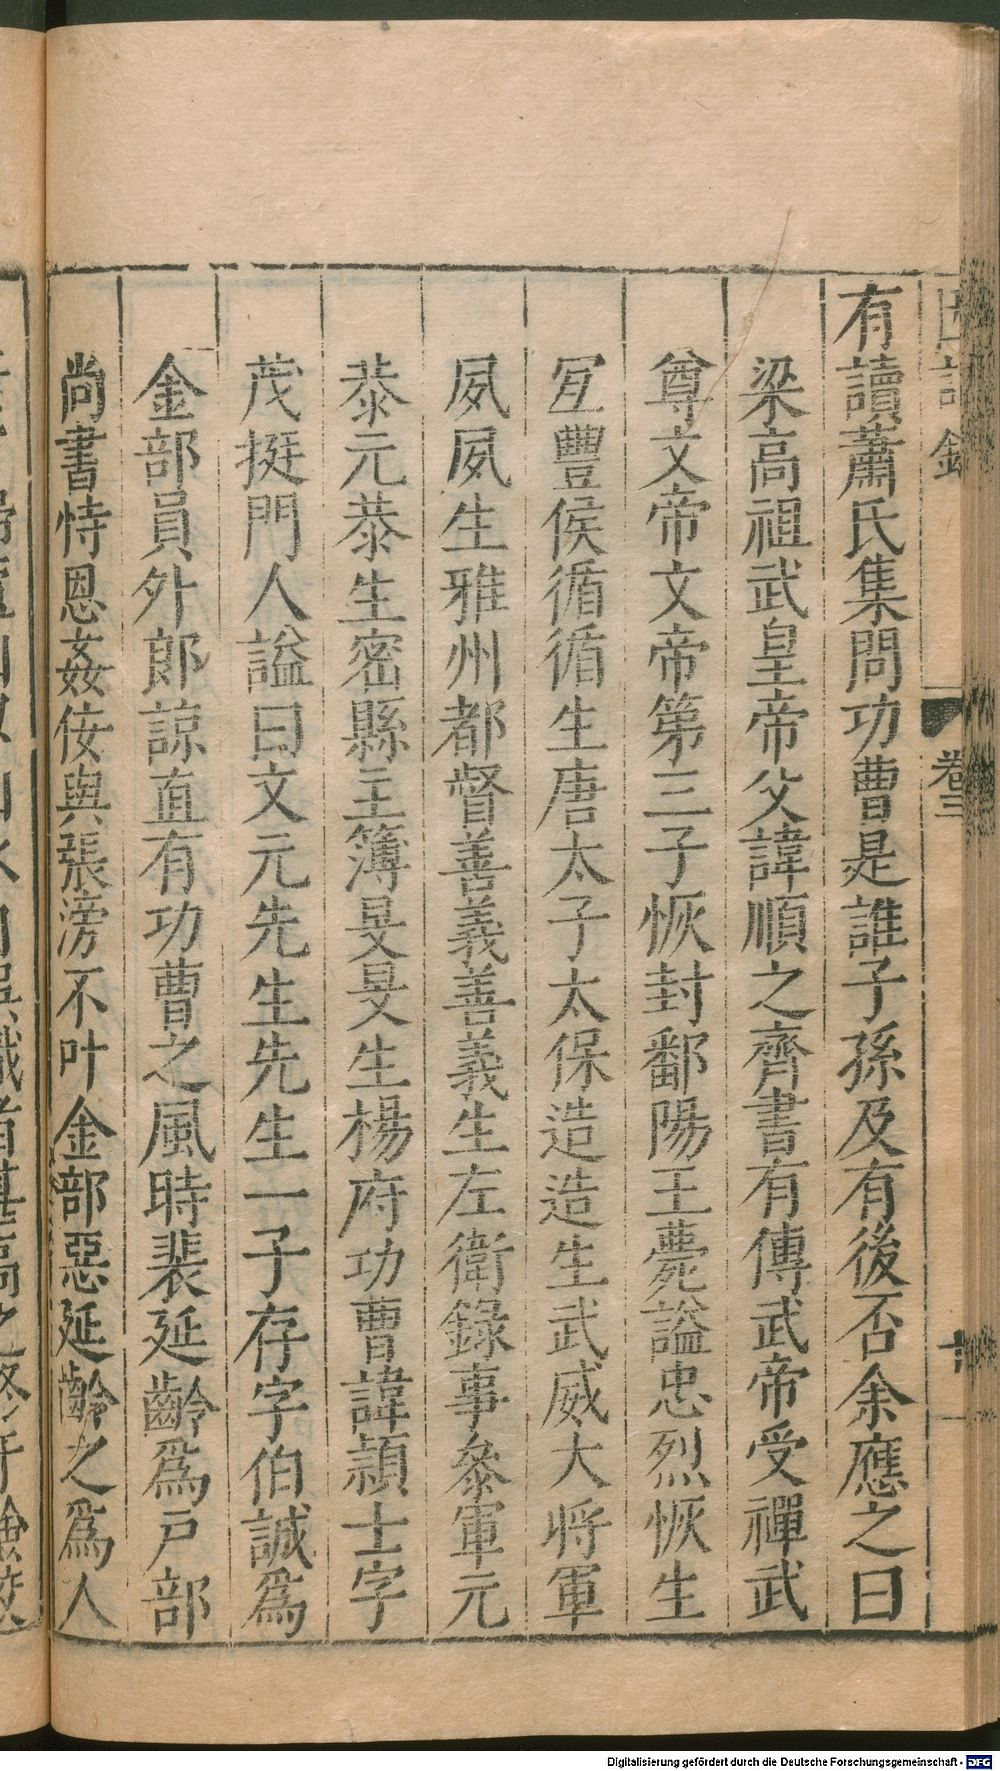 有讀蕭氏集問功曹是誰子孫及有後否余應之曰
梁高祖武皇帝父諱順之齊書有傳武帝受禪武
尊文帝文帝第三子恢封鄱陽王薨謚忠烈恢生
冝豐侯循循生唐太子太保造造生武威大將軍
夙夙生雅州都督善義善義生左衛錄事叅軍元
恭元恭生密縣主簿旻旻生楊府功曹諱頴士字
茂挺門人謚曰文元先生先生一子存字伯誠爲
金部員外郞諒直有功曹之風時裴延齡爲戸部
尚書恃恩姦侫與張滂不叶金部惡延齡之爲人
卷三
Digitalisierung gefördert durch die Deutsche Forschungsgemeinschaft - DFG